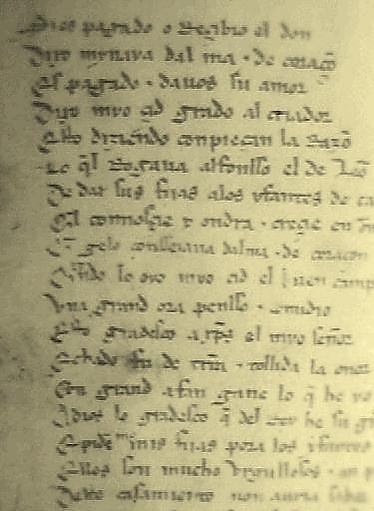 Si es pagado o Reçibio el don
Dixo mynaya dal ma & de coraço
Es pagado & dauos su amor
Dixo myo çid grado al criador
Esto diziendo conpieçan la Razõ
Lo q̃l Rogaua alfonsso el de Leõ
De dar sus fijas alos yfantes de ca
Q̃l connosçie y ondra & creçie en
Q̃ gelo conseiaua dalma & de coraçon
Q̃ndo lo oyo myo çid el buen camp
Vna grand ora pensso & comidio
Esto gradesco a xp̃s el myo señor
Echado fu de trr̃a & tollida la onor
Con grand afan gane lo q̃ he yo
A dios lo gradesco q̃ del Rey he su gr
E pidẽ me mis fijas pora los yfantes
Ellos son mucho vrgullosos & an p
Deste casamiento non auria sabor